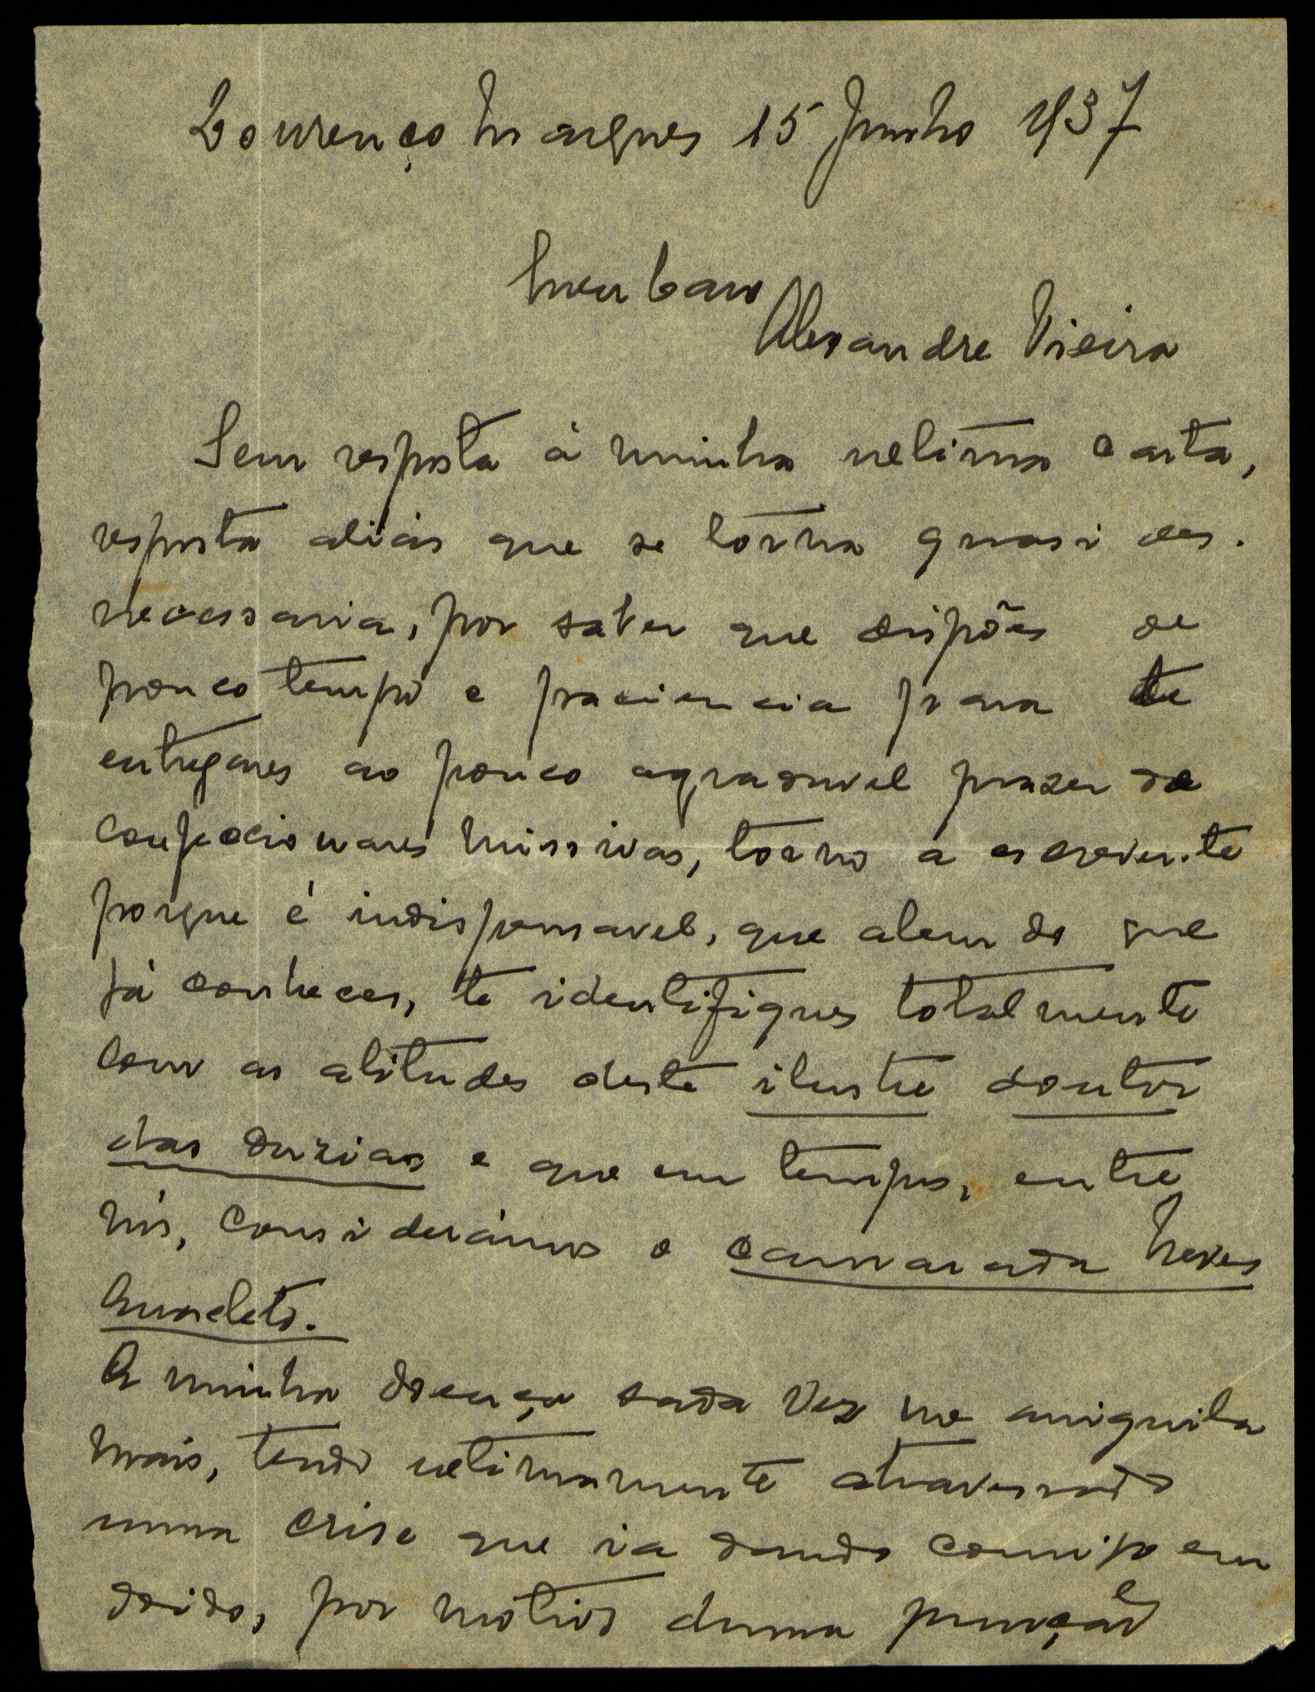 Lourenço Marques 15 Junho 1937
Meu Caro
Alexandre Vieira
Sem resposta á minha ultima carta,
resposta aliás que se torna quasi des-
necessaria, por saber que dispões de
pouco tempo e paciencia para te
entregares ao pouco agradavel prazer de
confecionares missivas, torno a escrever-te
porque é indispensavel, que alem do que
já conheces, te identifiques totalmente
com as atitudes deste ilustre doutor
das duzias e que em tempos, entre
nós, considerámos o camarada Neves
Anacleto.
A minha doença cada vez me aniquila
mais, tendo ultimamente atravessado
uma crise que ia dando comigo em
doido, por motivo duma punção